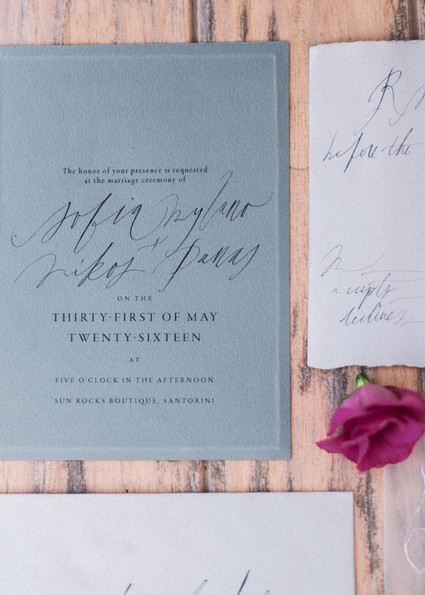 The honor of your presence is requested
at the marriage ceremony of
Sofia Mylano
+
Nikos Panas
ON THE
THIRTY·FIRST OF MAY
TWENTY·SIXTEEN
AT
FIVE O'CLOCK IN THE AFTERNOON
SUN ROCKS BOUTIQUE, SANTORINI
R
before the
accepts
declines